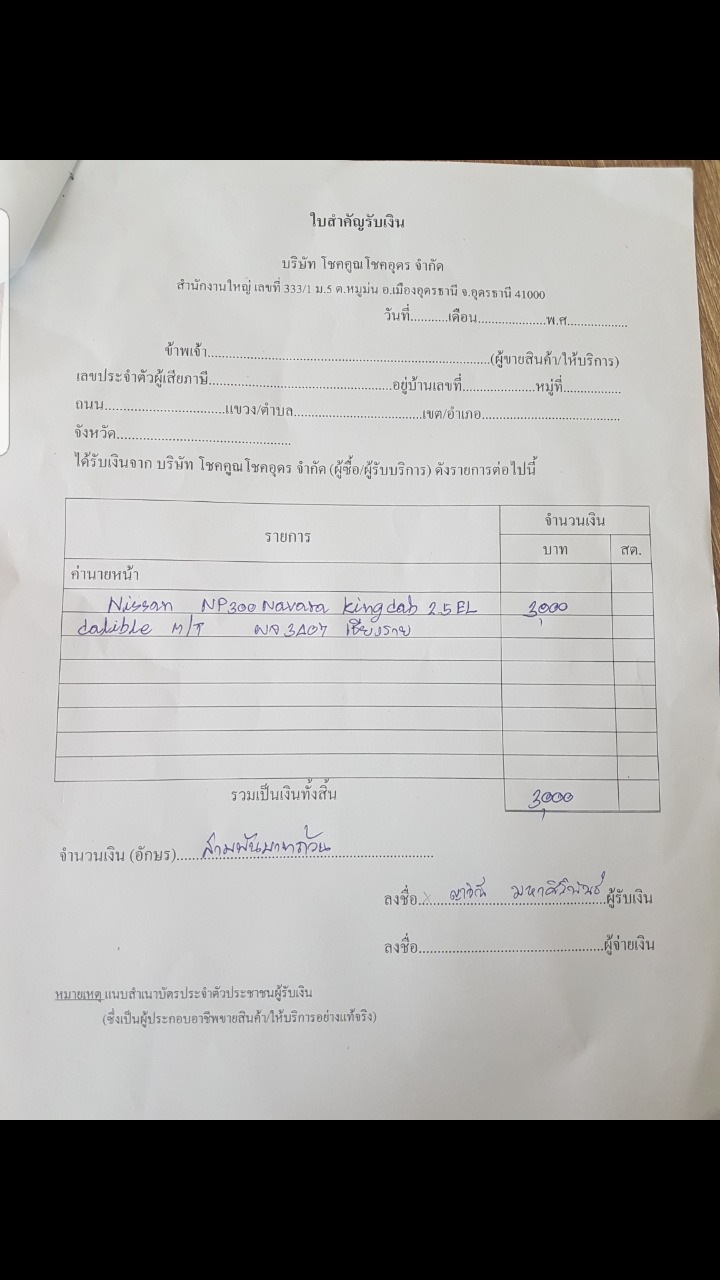 ใบสำคัญรับเงิน
บริษัท โชคคูณโชคอุดร จำกัด
สำนักงานใหญ่ เลขที่ 333/1 ม.5 ต.หมูม่น อ.เมืองอุดรธานี จ.อุดรธานี 41000
วันที่...........เดือน....................พ.ศ..................
ข้าพเจ้า....................................................................................(ผู้ขายสินค้า/ให้บริการ)
เลขประจำตัวผู้เสียภาษี......................................................อยู่บ้านเลขที่.....................หมู่ที่.................
ถนน...................................แขวง/ตำบล......................................เขต/อำเภอ.........................................
จังหวัด...................................................
ได้รับเงินจาก บริษัท โชคคูณโชคอุดร จำกัด (ผู้ซื้อ/ผู้รับบริการ) ดังรายการต่อไปนี้
รายการ จำนวนเงิน
บาท สต.
ค่านายหน้า
Nissan NP300 Navara King cab 2.5EL 3,000
calible M/T เชียงราย
รวมเป็นเงินทั้งสิ้น 3,000
จำนวนเงิน (อักษร)....สามพันบาทถ้วน....
ลงชื่อ x มหาศิริพันธุ์ ผู้รับเงิน
ลงชื่อ......................................................ผู้จ่ายเงิน
หมายเหตุ แนบสำเนาบัตรประจำตัวประชาชนผู้รับเงิน
(ซึ่งเป็นผู้ประกอบอาชีพขายสินค้า/ให้บริการอย่างแท้จริง)